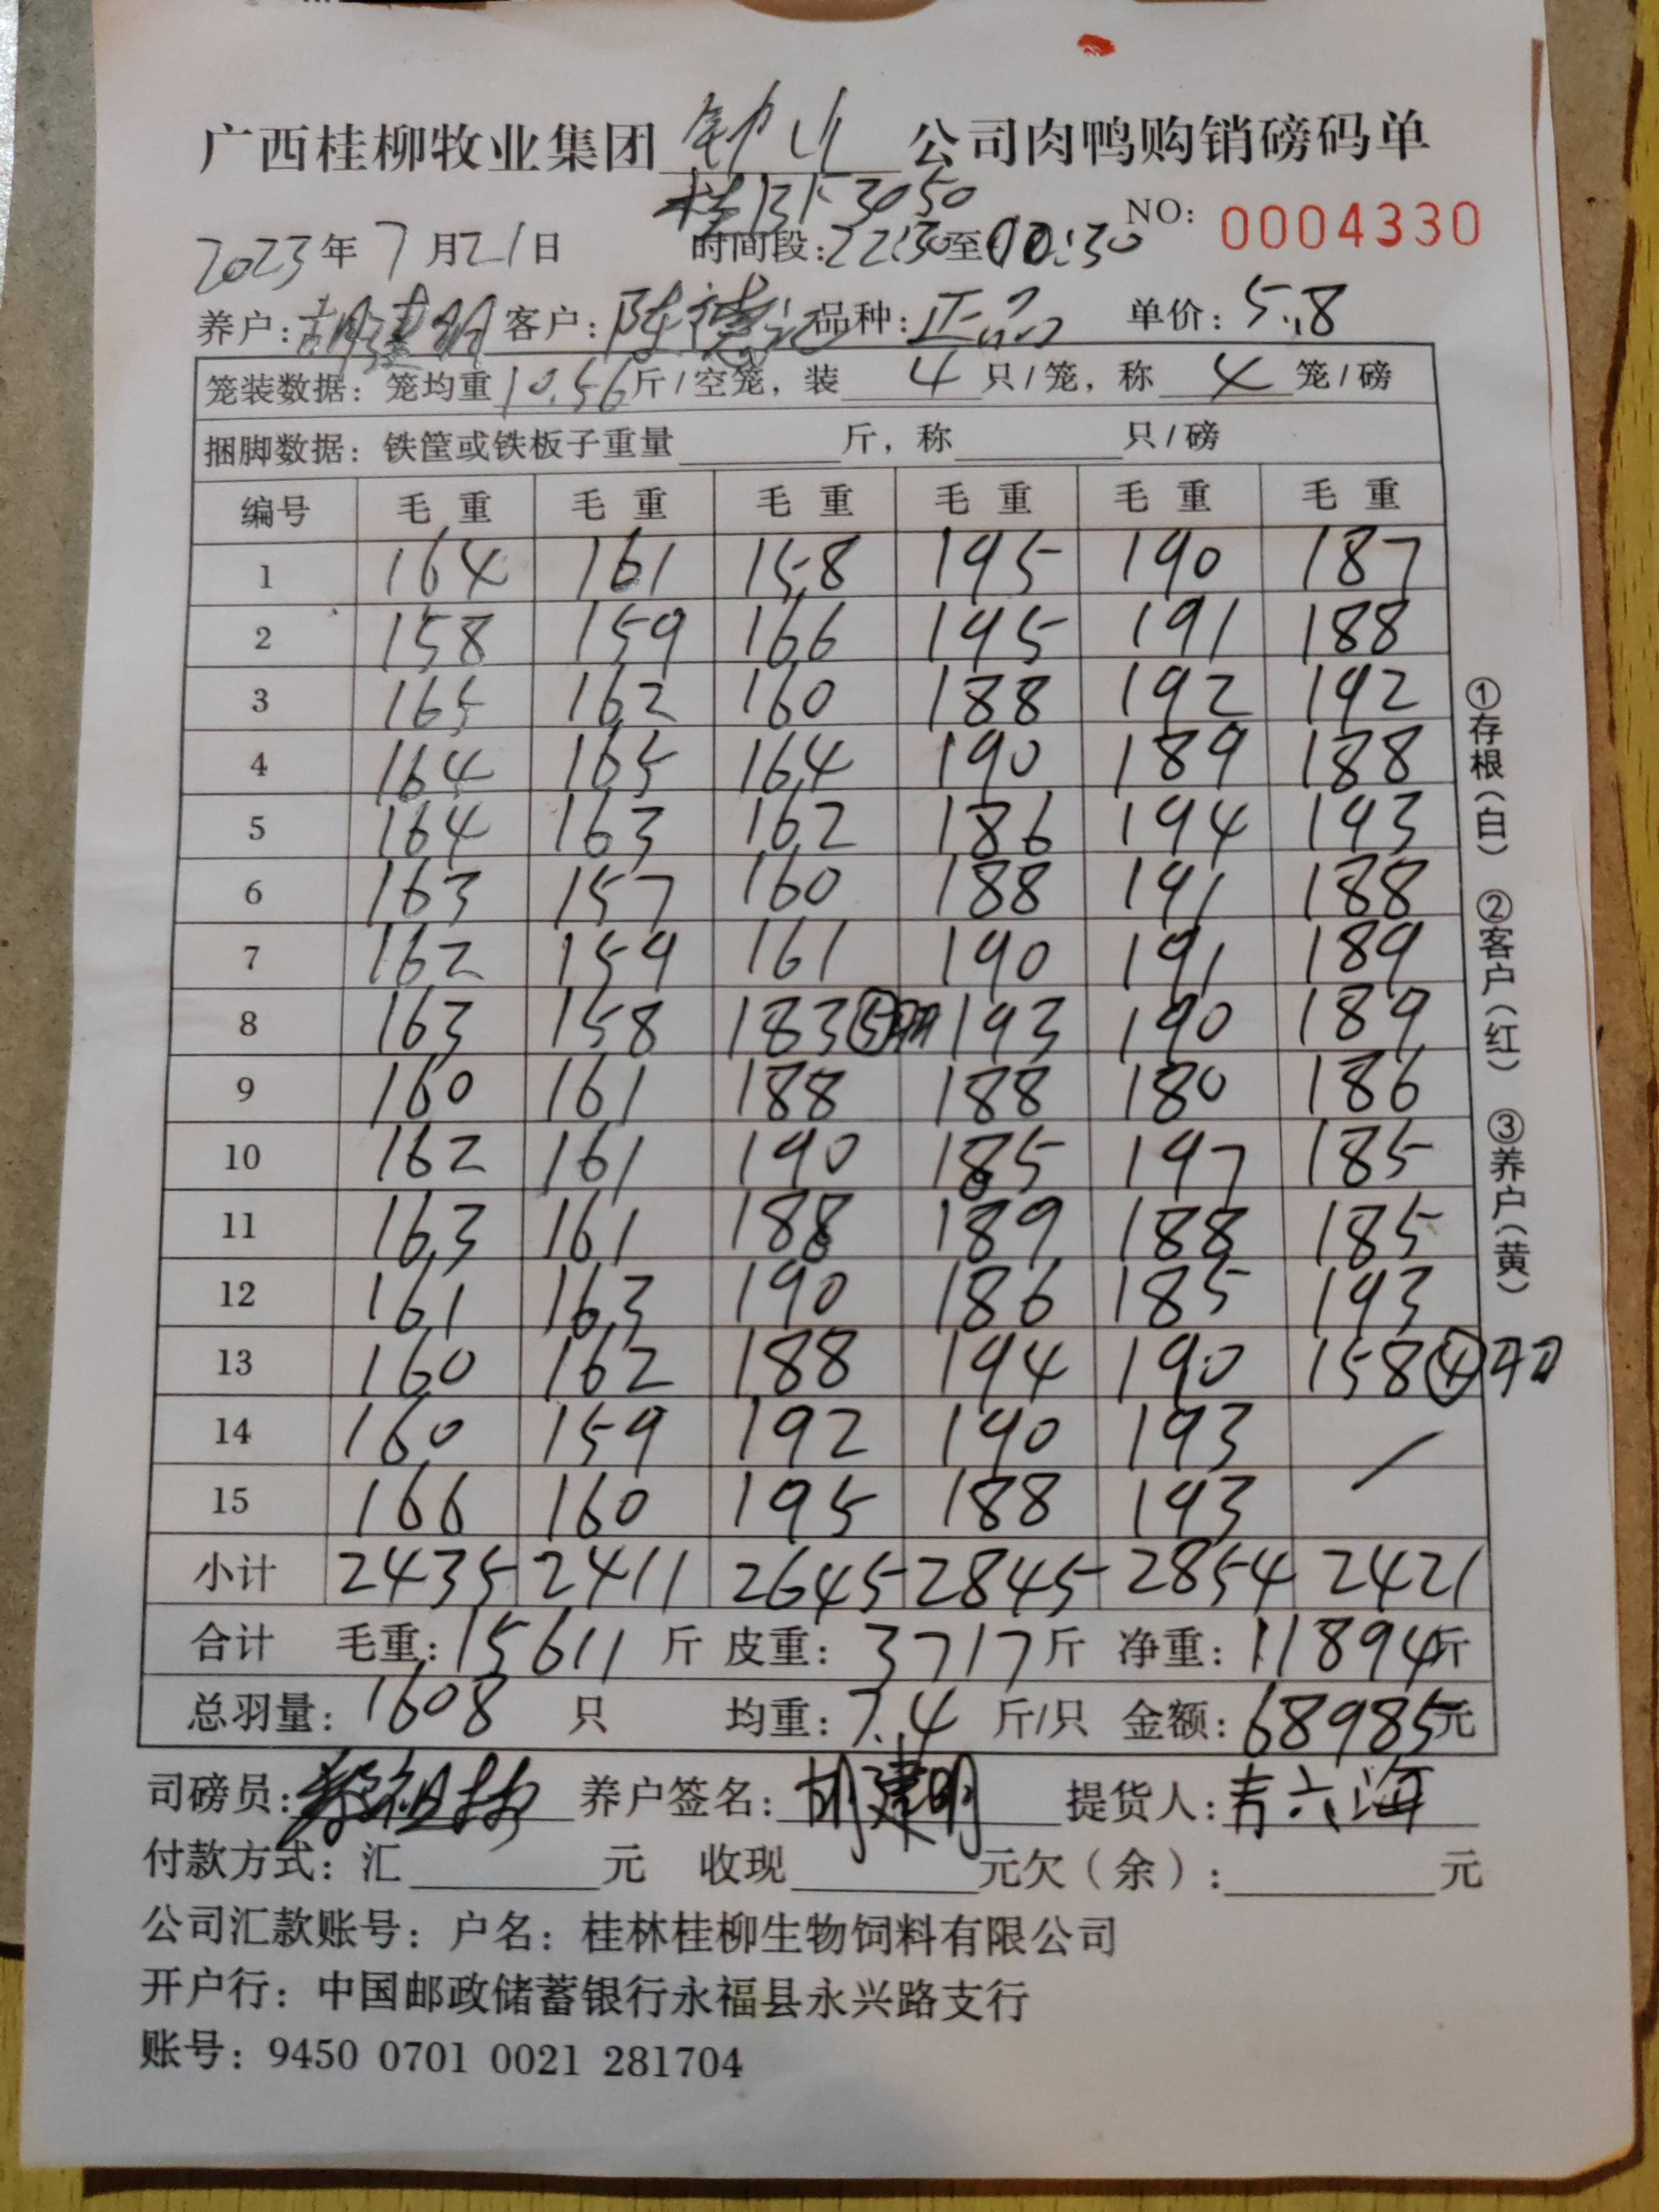 广西桂柳牧业集团 公司肉鸭购销磅码单
NO: 0004330
2023年7月21日 时间段:22:30至00:30
养户:胡建明 客户:陈德 品种:正品 单价:5.8
笼装数据:笼均重10.56斤/空笼,装4只/笼,称4笼/磅
捆脚数据:铁筐或铁板子重量 斤,称 只/磅
编号 毛重 毛重 毛重 毛重 毛重 毛重
1 164 161 158 195 190 187
2 158 159 166 195 191 188
3 165 162 160 188 192 192
4 164 165 164 190 189 188
5 164 163 162 186 194 193
6 163 157 160 188 191 188
7 162 159 161 190 191 189
8 163 158 183⑤ 193 190 189
9 160 161 188 188 180 186
10 162 161 190 185 197 185
11 163 161 188 189 188 185
12 161 163 190 186 185 193
13 160 162 188 194 190 158④
14 160 159 192 190 193
15 166 160 195 188 193
小计 2435 2411 2645 2845 2854 2421
合计 毛重:15611斤 皮重:3717斤 净重:11894斤
总羽量:1608只 均重:7.4斤/只 金额:68985元
司磅员: 养户签名:胡建明 提货人:六海
付款方式:汇 元 收现 元欠(余): 元
公司汇款账号:户名:桂林桂柳生物饲料有限公司
开户行:中国邮政储蓄银行永福县永兴路支行
账号:9450 0701 0021 281704
①存根(白) ②客户(红) ③养户(黄)